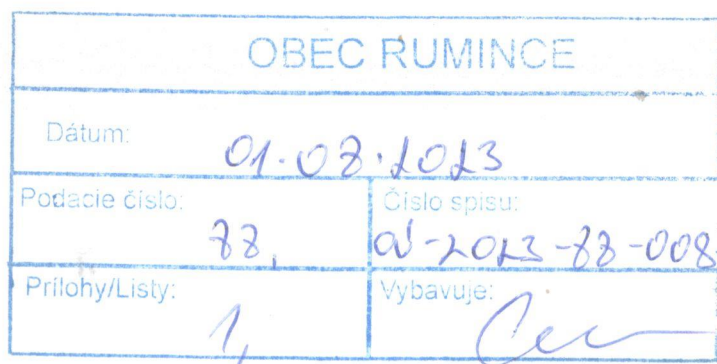 OBEC RUMINCE
Dátum: 01.08.2023
Podacie číslo: 88,
Číslo spisu: OÚ-2023-88-008
Prílohy/Listy: 1,
Vybavuje: